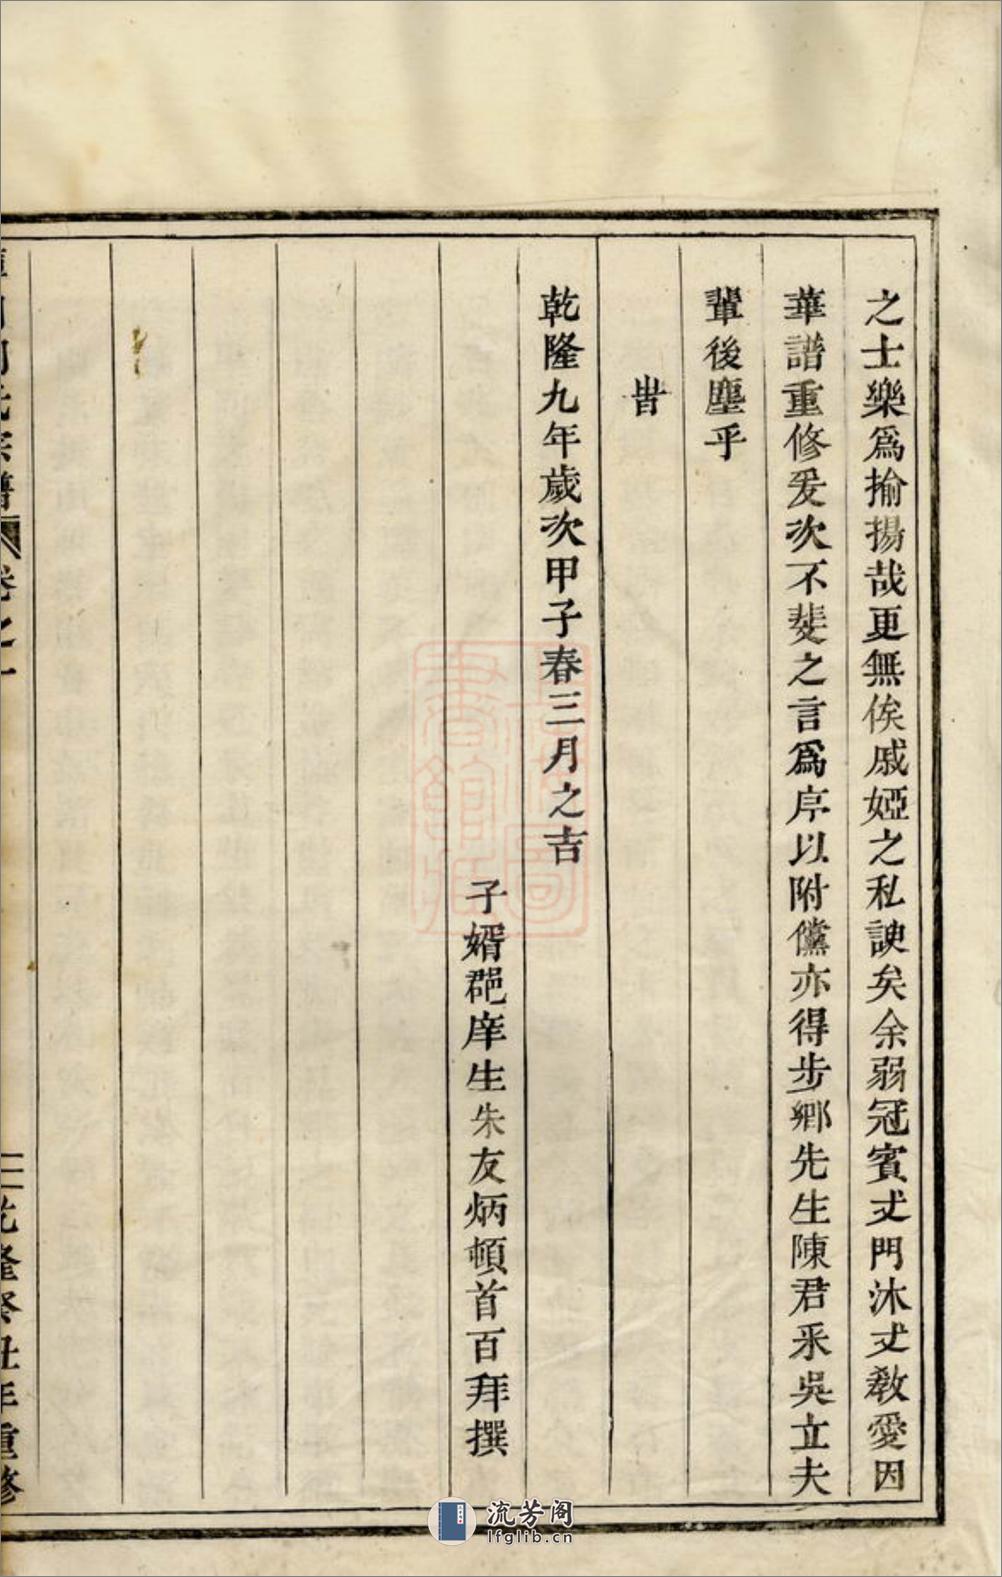 之士樂爲揄揚哉更無俟戚婭之私諛矣余弱冠賓𠀋門沐𠀋教愛因
華譜重修爰次不斐之言爲序以附儻亦得步鄉先生陳君采吳立夫
輩後塵乎
旹
乾隆九年歲次甲子春三月之吉
子婿邑庠生朱友炳頓首百拜撰
氏宗譜 卷之一 二 乾隆癸丑年重修
流芳阁
lfglib.cn